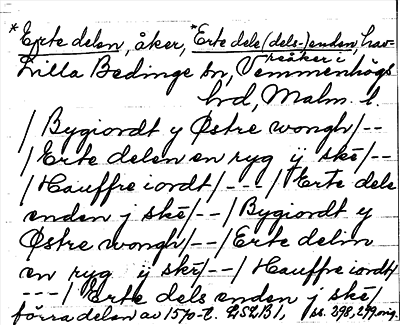 *Erte delen, åker, *Erte dels (dels-) enden, hav-
reåker i
Lilla Bedinge sn, Vemmenhögs
hd, Malm. l.
/ Bygiordt y Østre wongh/--
/ Erte delen en ryg ij skē/--
/ Hauffre iordt/---/ Erte dels
enden j skē/--/ Bygiordt y
Østre wongh/--/ Erte delin
en ryg ij skē/--/ Hauffre iordt/
---/ Erte dels enden j skē/
förra delen av 1570-t. LSLB1, ss. 298, 299 orig.